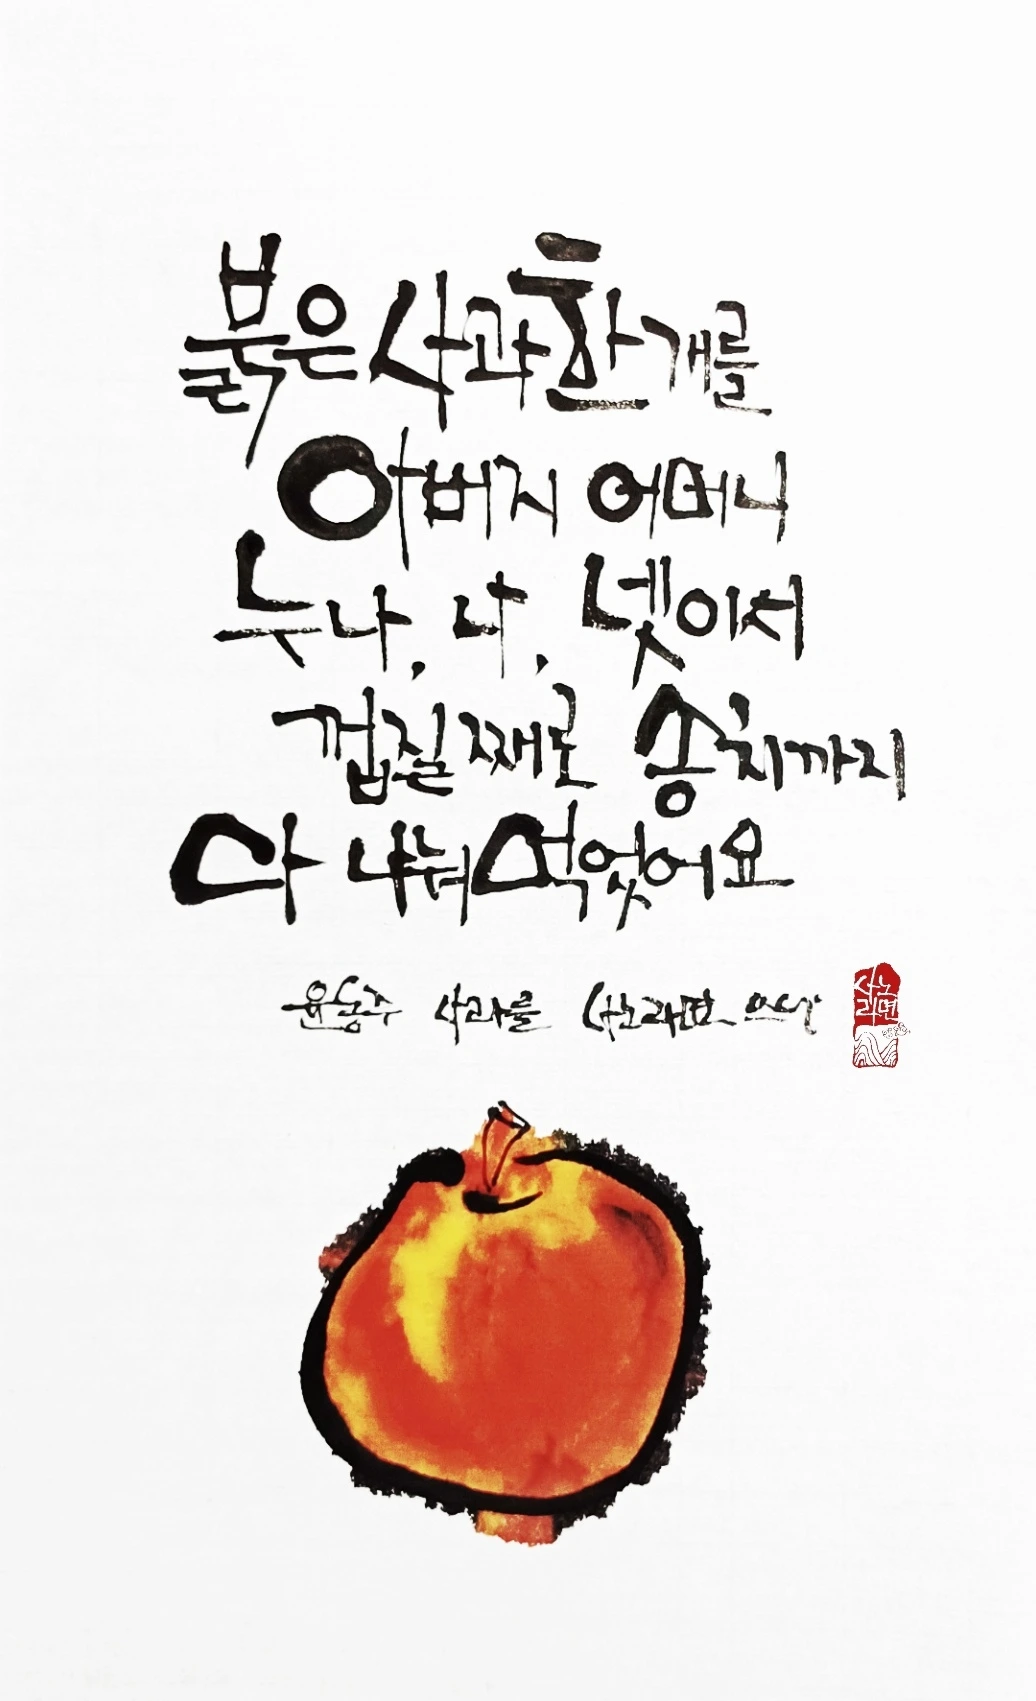 붉은 사과 한 개를
아버지 어머니
누나, 나, 넷이서
껍질째로 송치까지
다 나눠 먹었어요
윤동주 사과를